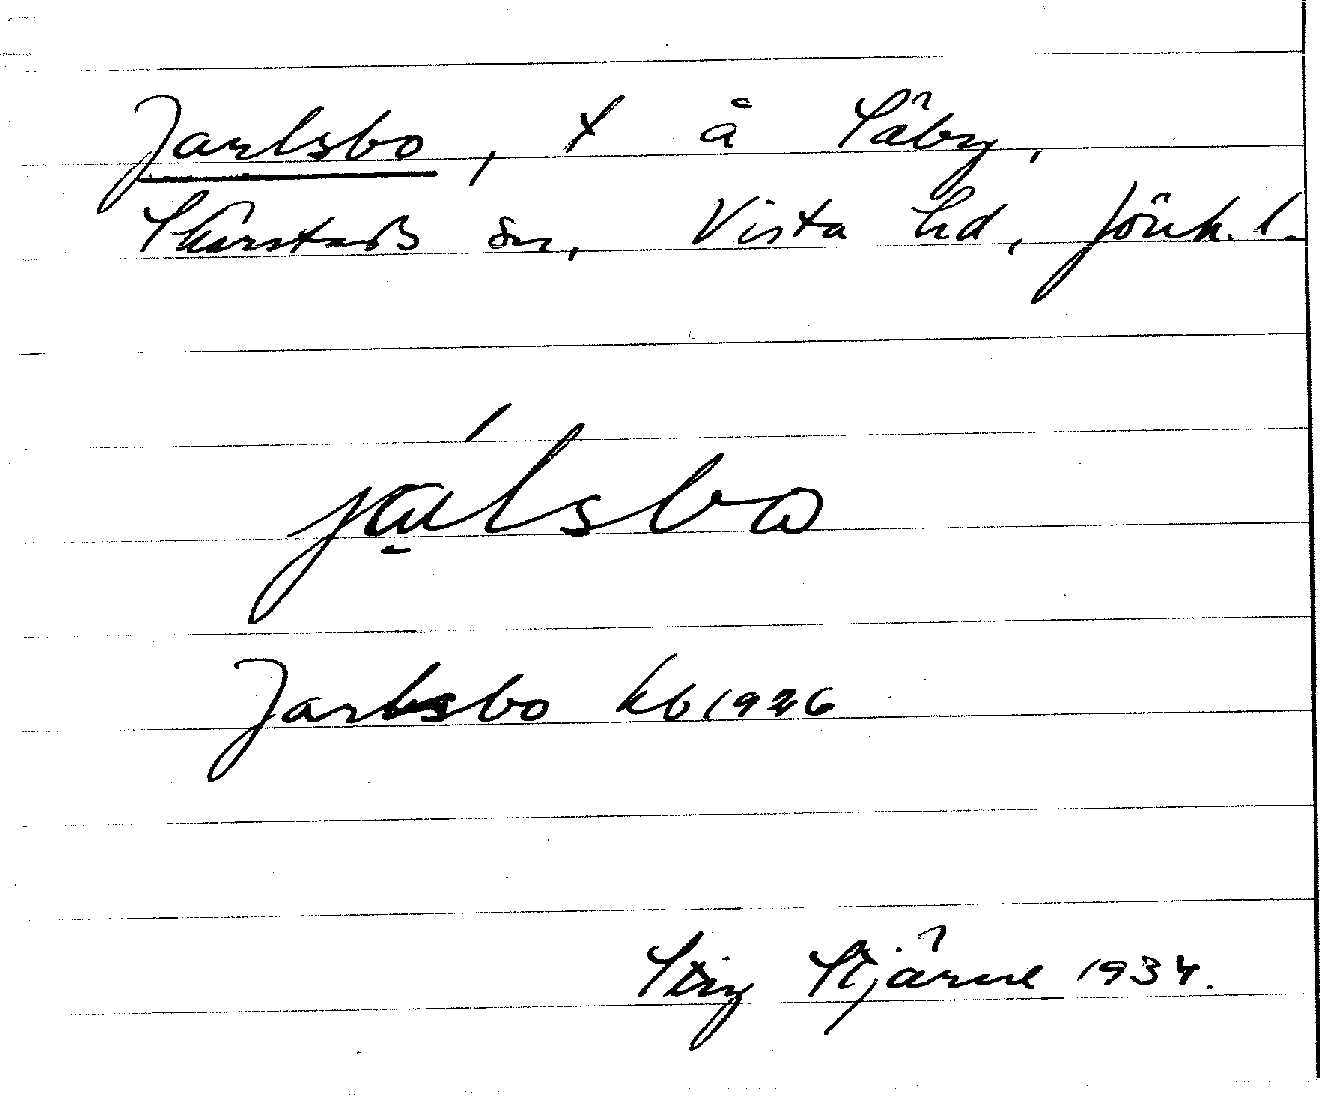 Jarlsbo, t å Säby,
Skärstads sn, Vista hd, Jönk. l.
jáłsbo
Jarlsbo kb 1926
Stig Stjärne 1934.